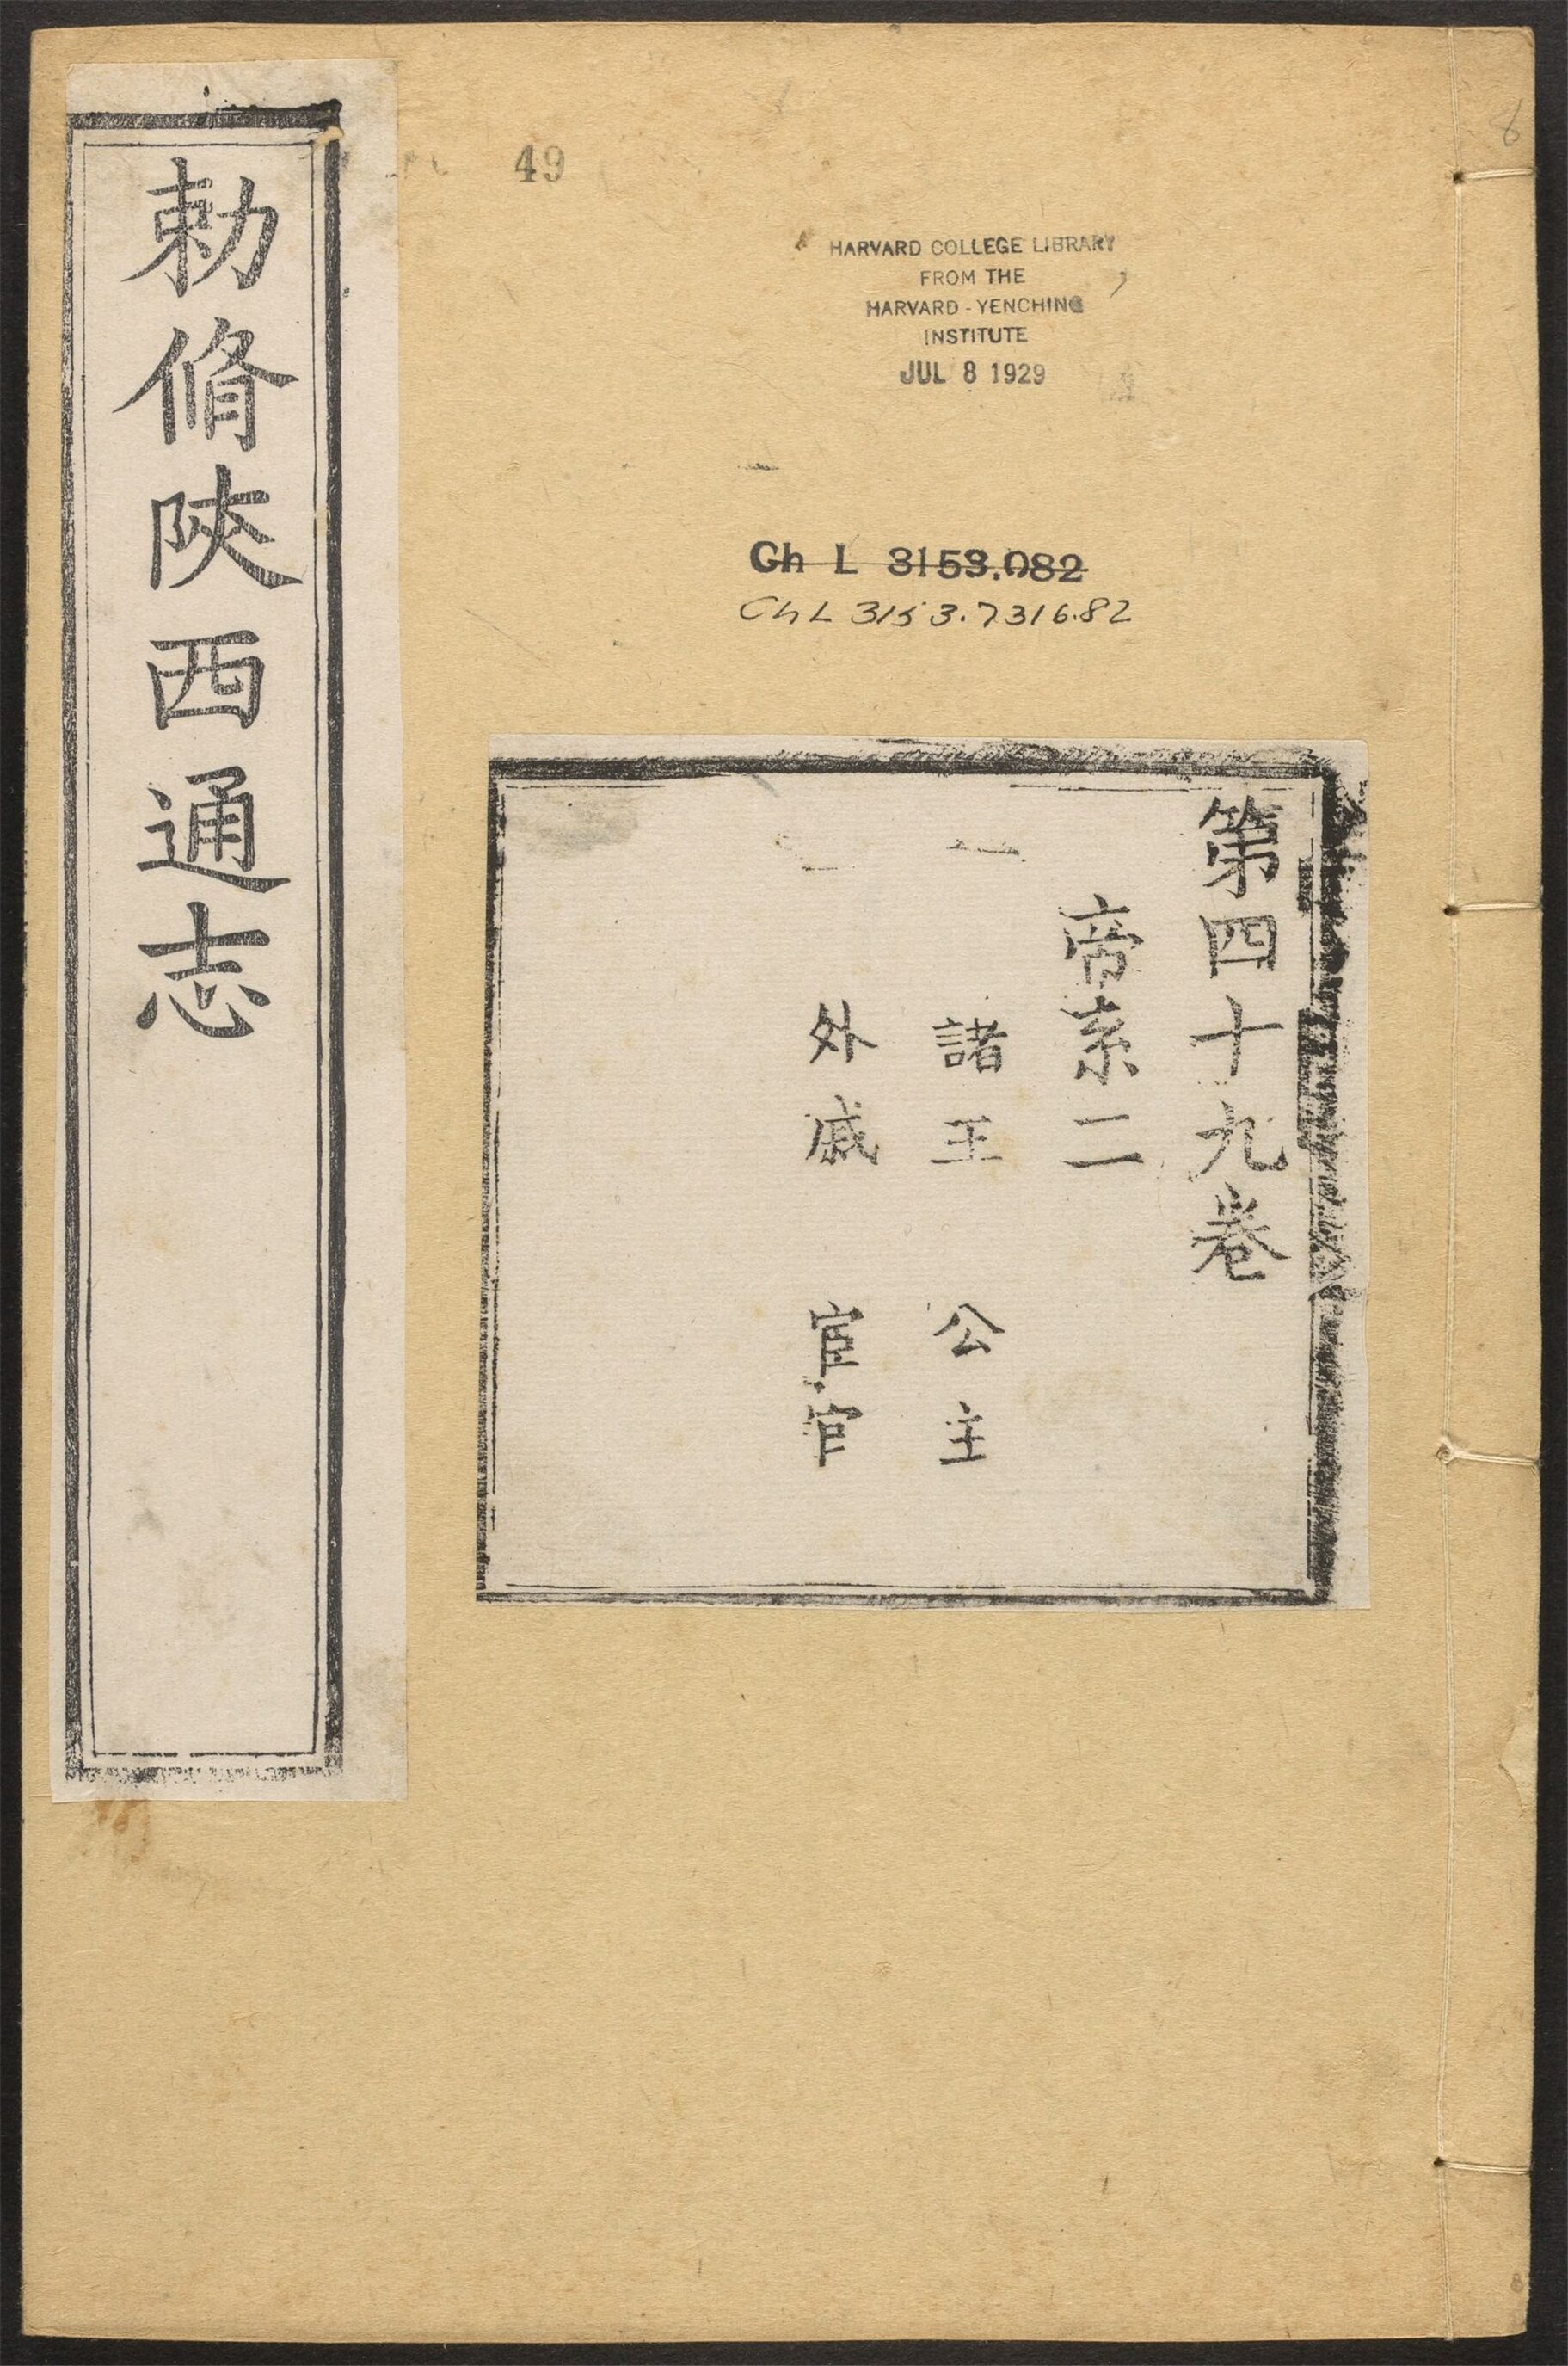 勅脩陜西通志
49
HARVARD COLLEGE LIBRARY
FROM THE
HARVARD-YENCHING
INSTITUTE
JUL 8 1929
Ch L 3153.082
ChL 3153.7316.82
第四十九卷
帝系二
諸王 公主
外戚 宦官
8